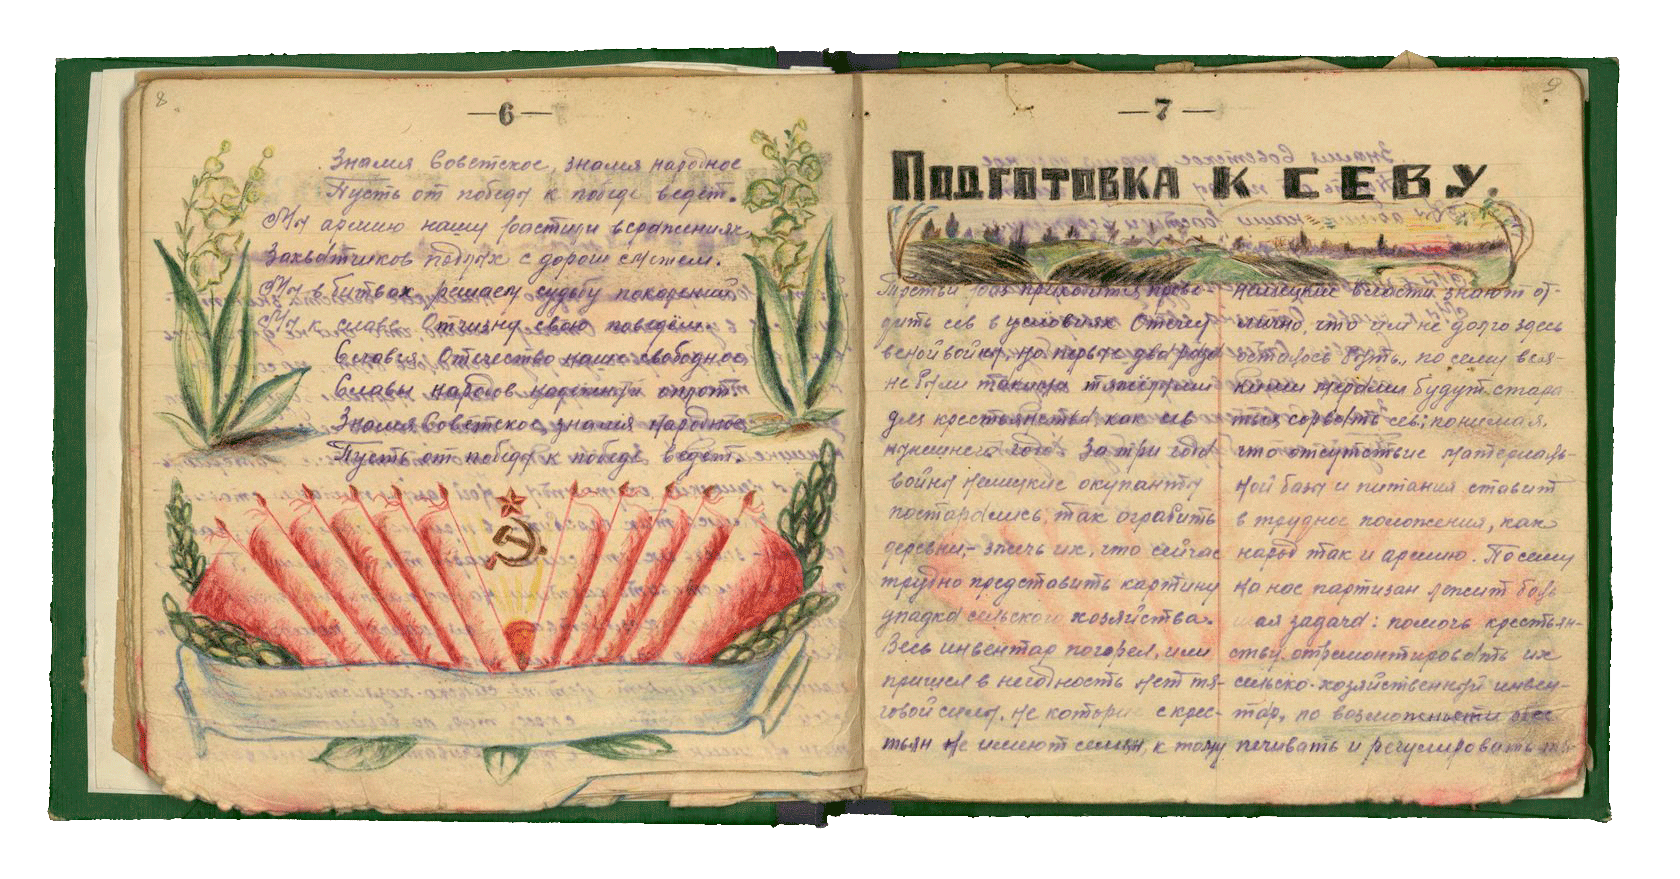 8
— 6 —
Знамя Советское, знамя народное
Пусть от победы к победе ведет.
Мы армию нашу растили в сраженьях,
Захватчиков подлых с дороги сметем.
Мы в битвах решаем судьбу поколений
Мы к славе Отчизну свою поведем.
Славься Отечество наше свободное
Славы народов надежный оплот.
Знамя Советское, знамя народное
Пусть от победы к победе ведет.
9
— 7 —
Подготовка к севу.
Третьи раз приходится прово-
дить сев в условиях Отечест
венной войны, но первые два раза
не были такими тяжёлыми
для крестьянства, как сев
нынешнего года. За три года
войны немецкие оккупанты
постарались, так ограбить
деревни, – сжечь их, что сейчас
трудно представить картину
упадка сельского хозяйства.
Весь инвентар погорел, или
пришел в негодность нет тя-
говой силы, не которые с крес-
тьян не имеют семян, к тому
немецкие власти знают от-
лично, что им не долго здесь
осталось быть, по сему вся-
кими мерами будут стара
ться сорвать сев; понимая,
что отсутствие материаль-
ной базы и питания ставит
в трудное положения, как
народ так и армию. По сему
на нас партизан лежит боль
шая задача: помочь крестьян-
ству отремонтировать их
сельско-хозяйственный инвен-
тар, по возможности обес
печивать и регулировать тя-